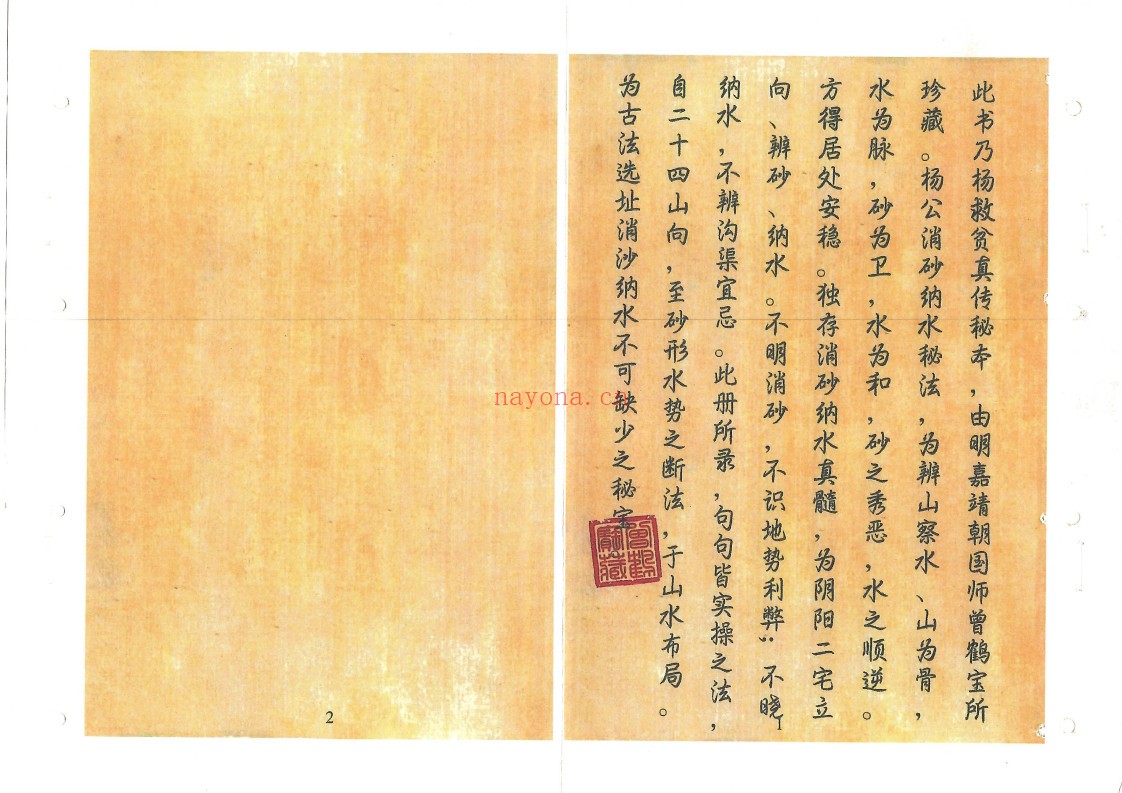 此书乃杨救贫真传秘本，由明嘉靖朝国师曾鹤宝所
珍藏。杨公消砂纳水秘法，为辨山察水、山为骨，
水为脉，砂为卫，水为和，砂之秀恶，水之顺逆。
方得居处安稳。独存消砂纳水真髓，为阴阳二宅立
向、辨砂、纳水。不明消砂，不识地势利弊；不晓
纳水，不辨沟渠宜忌。此册所录，句句皆实操之法，
自二十四山向，至砂形水势之断法，于山水布局。
为古法选址消沙纳水不可缺少之秘宝
1
2
nayona.cn